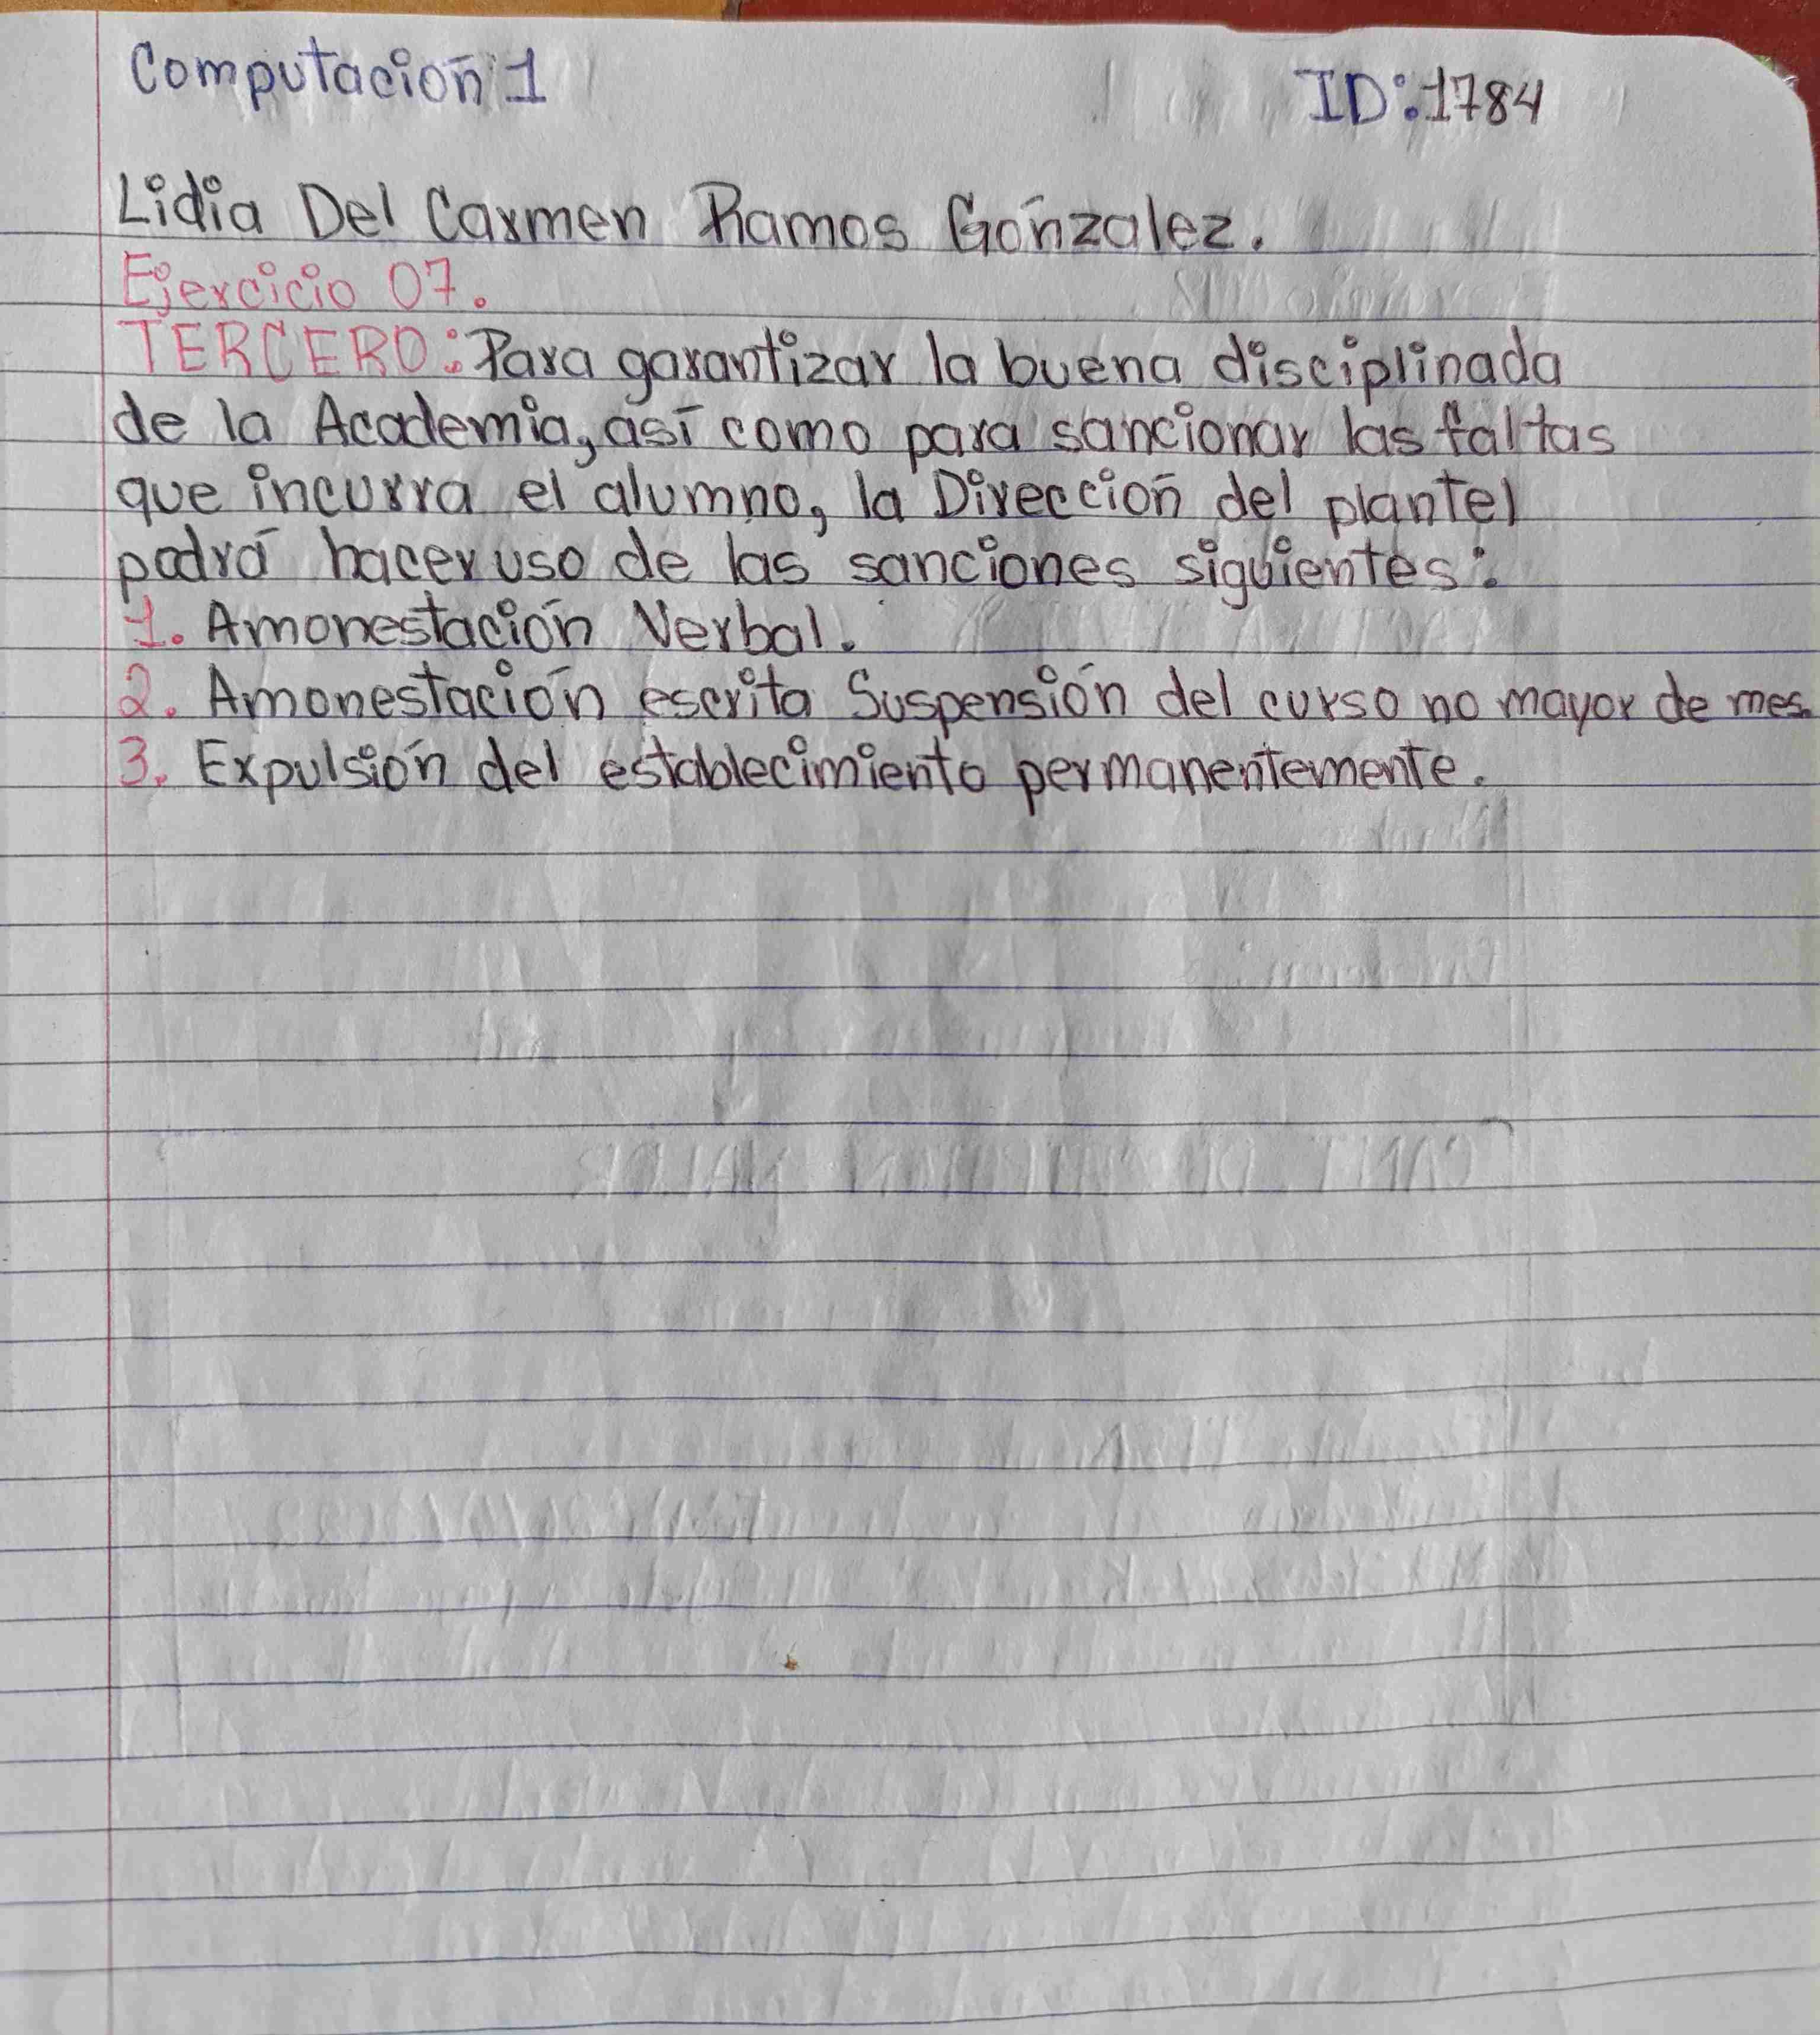 Computación 1
ID: 1784
Lidia Del Carmen Ramos Gónzalez.
Ejercicio 07.
TERCERO: Para garantizar la buena disciplinada
de la Academia, así como para sancionar las faltas
que incurra el alumno, la Dirección del plantel
podrá hacer uso de las sanciones siguientes:
1. Amonestación Verbal.
2. Amonestación escrita Suspensión del curso no mayor de mes.
3. Expulsión del establecimiento permanentemente.